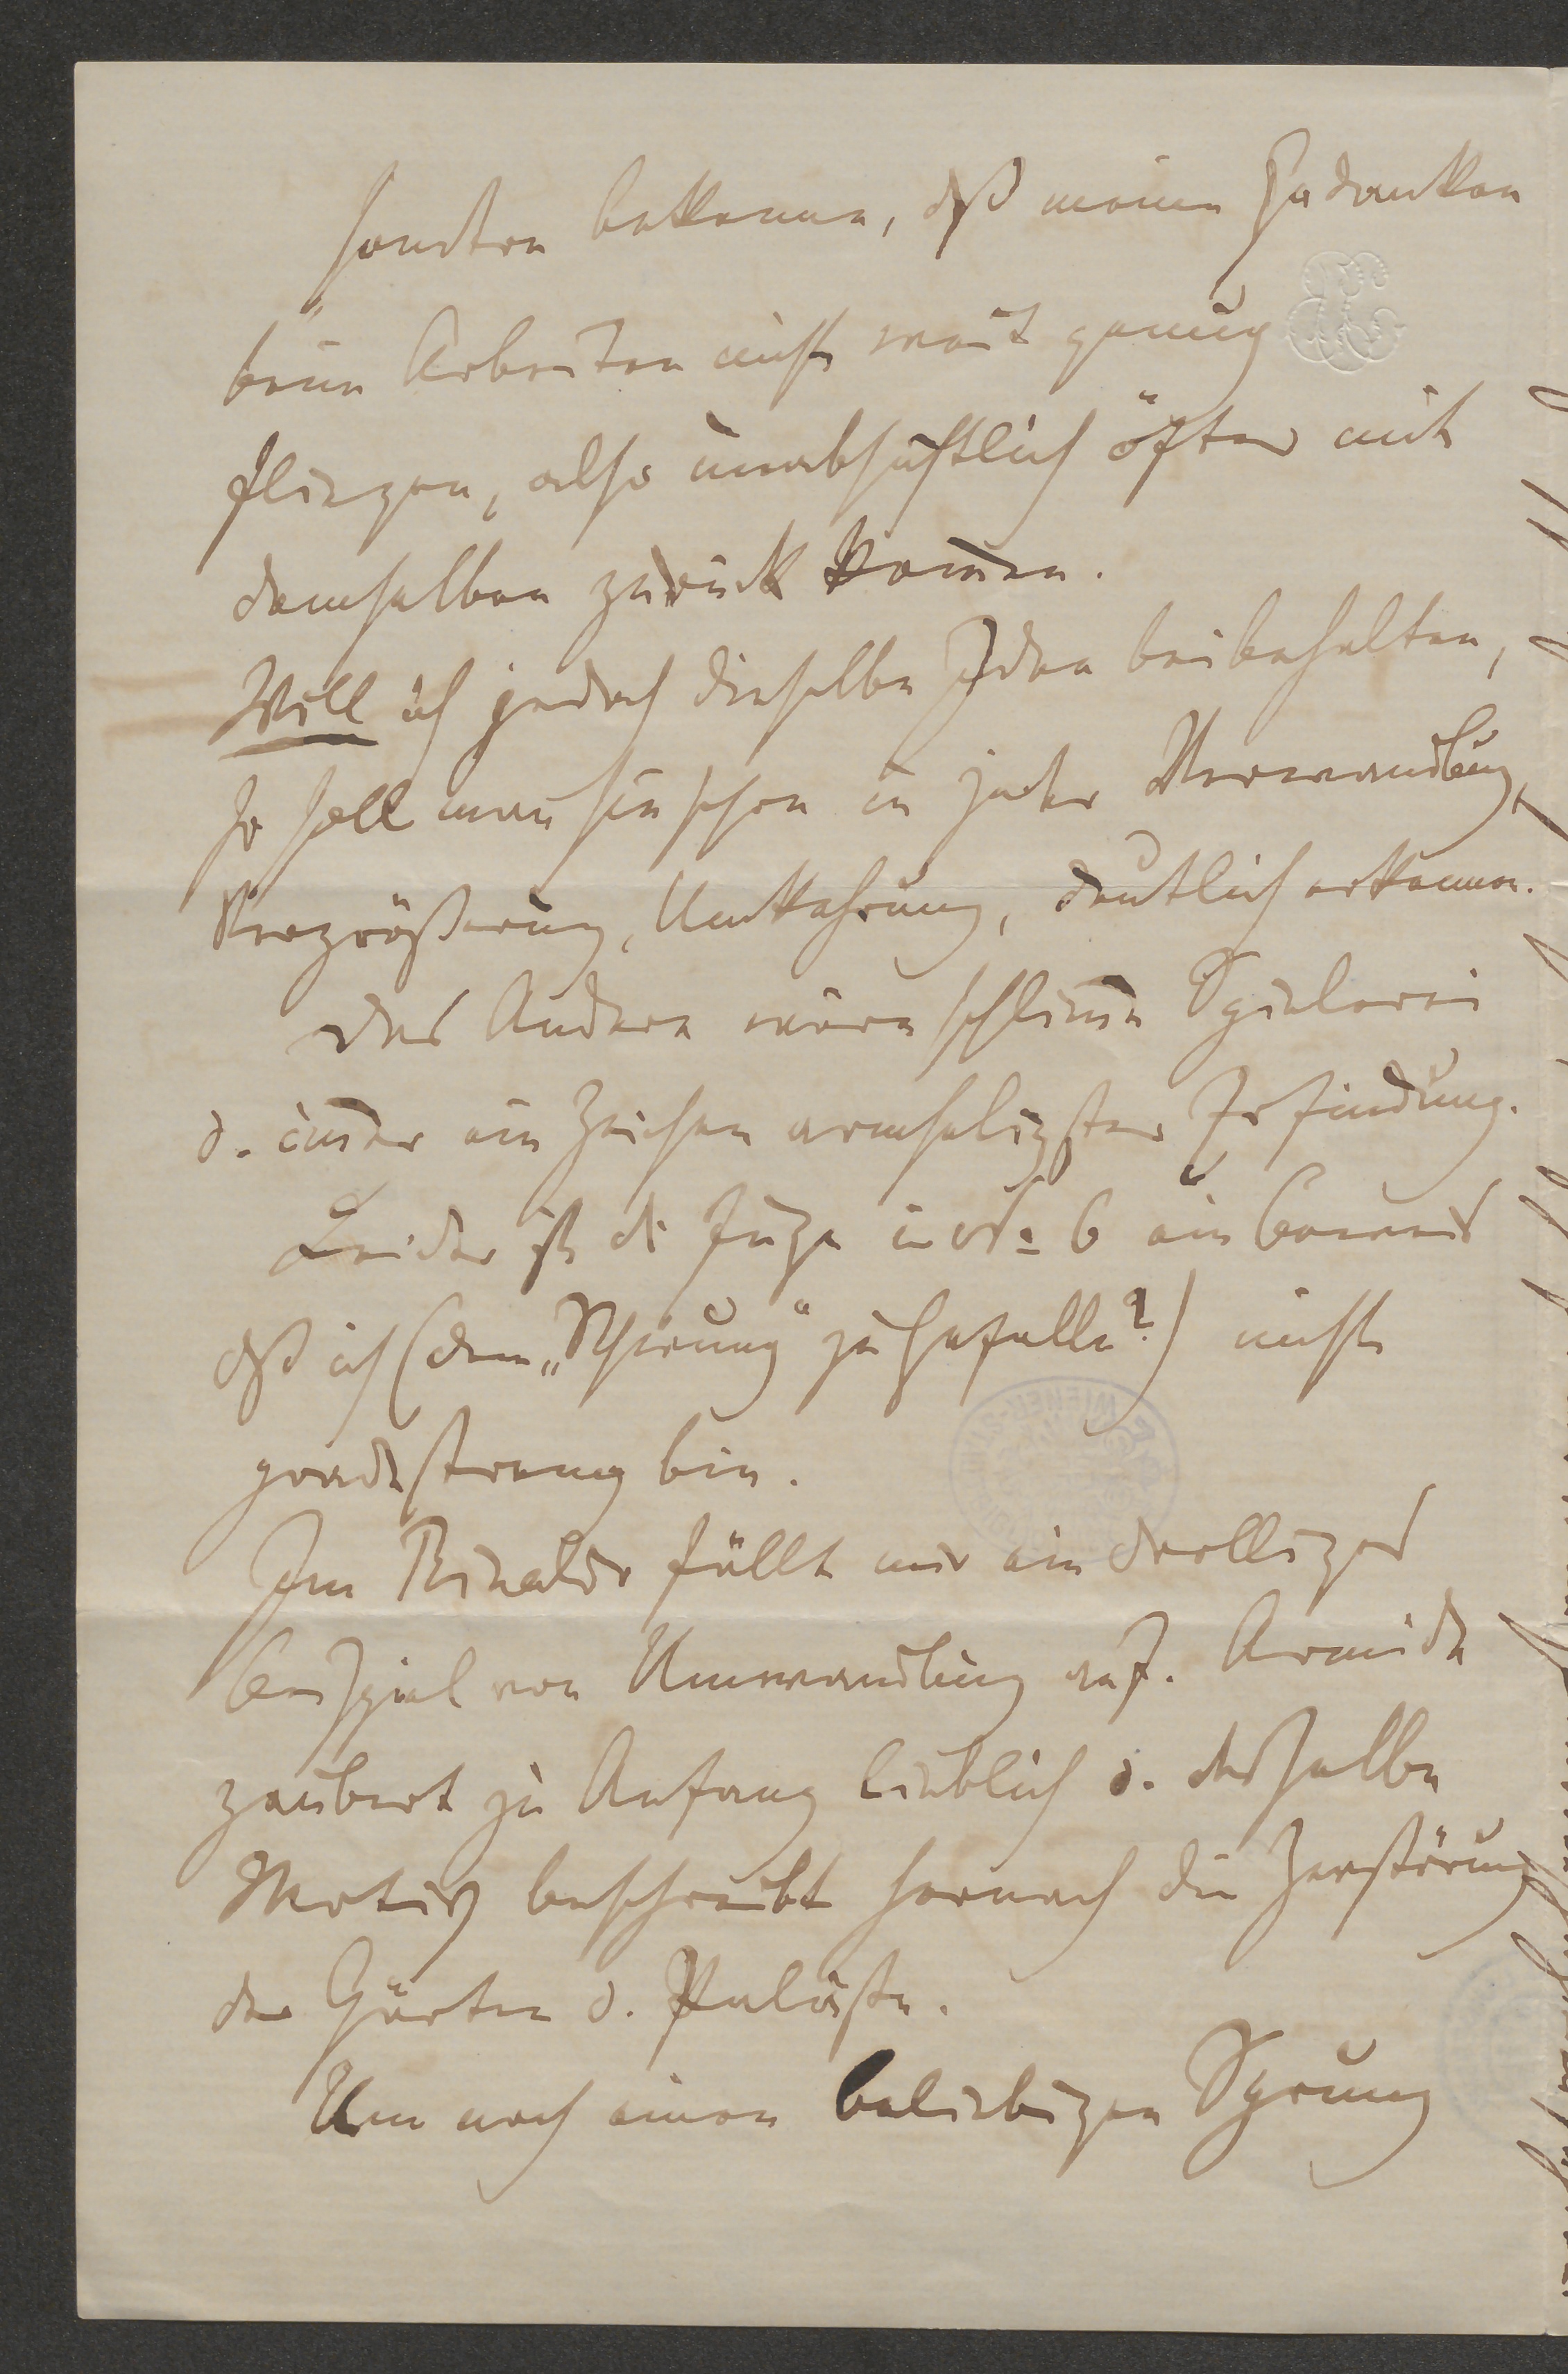 sondern bekenne, dß meine Gedanken
beim Arbeiten nicht weit genug
fliegen, also unabsichtlich öfter mit
demselben zurück kom̄en.
Will ich jedoch dieselbe Idee beibehalten,
so soll man sie schon in jeder Verwandlung,
Vergrößerung, Umkehrung, deutlich erkennen.
Das Andere wäre schlim̄e Spielerei
u. im̄er ein Zeichen armseligster Erfindung.
Leider ist di Fuge in No 6 ein Beweis
dß ich (dem „Schwung“ zu Gefalle?) nicht
grade streng bin.
Im Rinaldo fällt mir ein drolliges
Beispiel von Umwandlung auf. Armide
zaubert zu Anfang lieblich u. dasselbe
Motiv beschreibt hernach die Zerstörung
der Gärten u. Paläste.
Um noch einen beliebigen Sprung